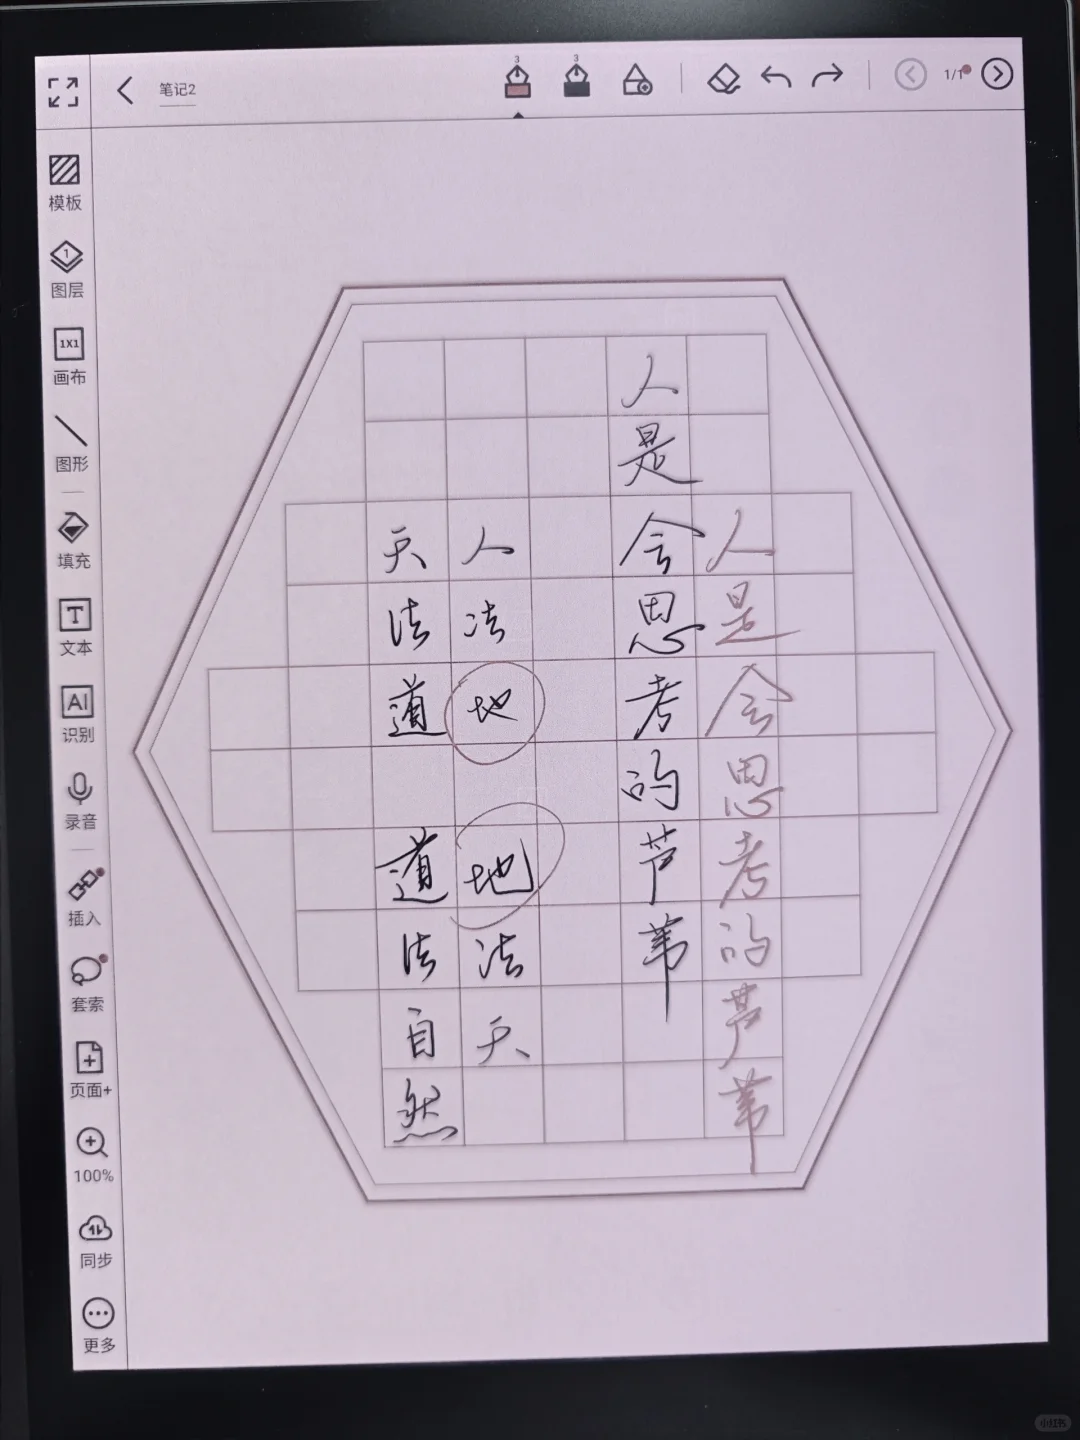 笔记2
3
3
1/1
模板
1
图层
1X1
画布
图形
填充
T
文本
AI
识别
录音
插入
套索
页面+
100%
同步
更多
人是会思考的芦苇
人是会思考的芦苇
人法地
地法天
天法道
道法自然
小红书